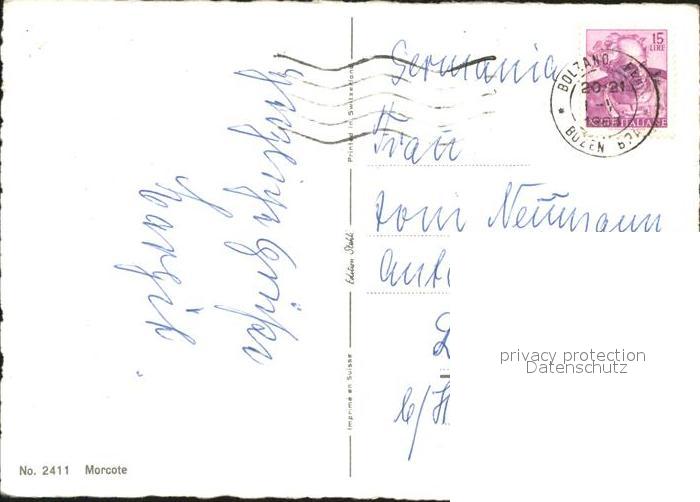 Herzliche Grüße
Margit
Germania
Frau
Toni Neumann
No. 2411 Morcote
Printed in Switzerland
Edition Stehli
Imprimé en Suisse
15
LIRE
ITALIANE
BOLZANO
20-21
1963
BOZEN
privacy protection
Datenschutz